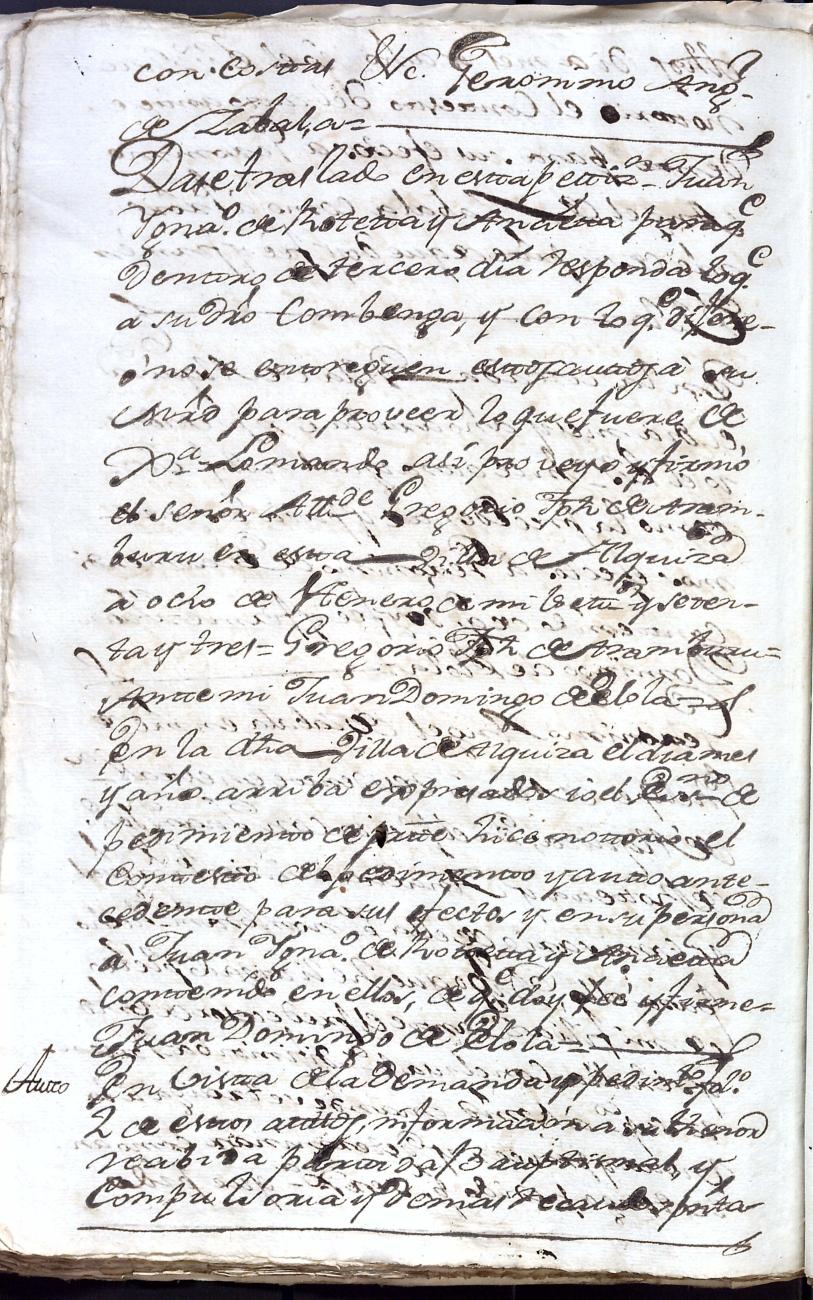 con costas &c. Geronimo Ang.
de Zabala=
Dase traslado en esta petiz.on Juan
Ygna.o de Roteta y Ancieta para q.e
dentro de tercero dia responda lo q.e
a su dro combenga, y con lo q.e dijere-
ó no se entreguen estos autos á su
Mrd para proveer lo que fuere de
Xa= Lo mando asi proveyo y firmó
el señor All.de Gregorio Jph de Aram-
buru en esta Villa de Alquiza
à ocho de Henero de mil set.os y seten-
ta y tres= Gregorio Jph de Aramburu=
Ante mi Juan Domingo de Elola=
En la dha Villa de Alquiza el dia mes
y año arriba expresados io el Es.no de
pedimiento de parte hice notorio el
contesto del pedimento y auto ante-
cedente para sus efectos y en su persona
á Juan Ygna.o de Roteta y Ancieta
contenido en ellos, de q.e doy feé y firme=
Juan Domingo de Elola=
Auto En vista de la Demanda y pedim.to fol.o
2 de estos autos, informacion a su thenor
recibida partida Bauptismal, y
Compulsoria y demas recados pnta-